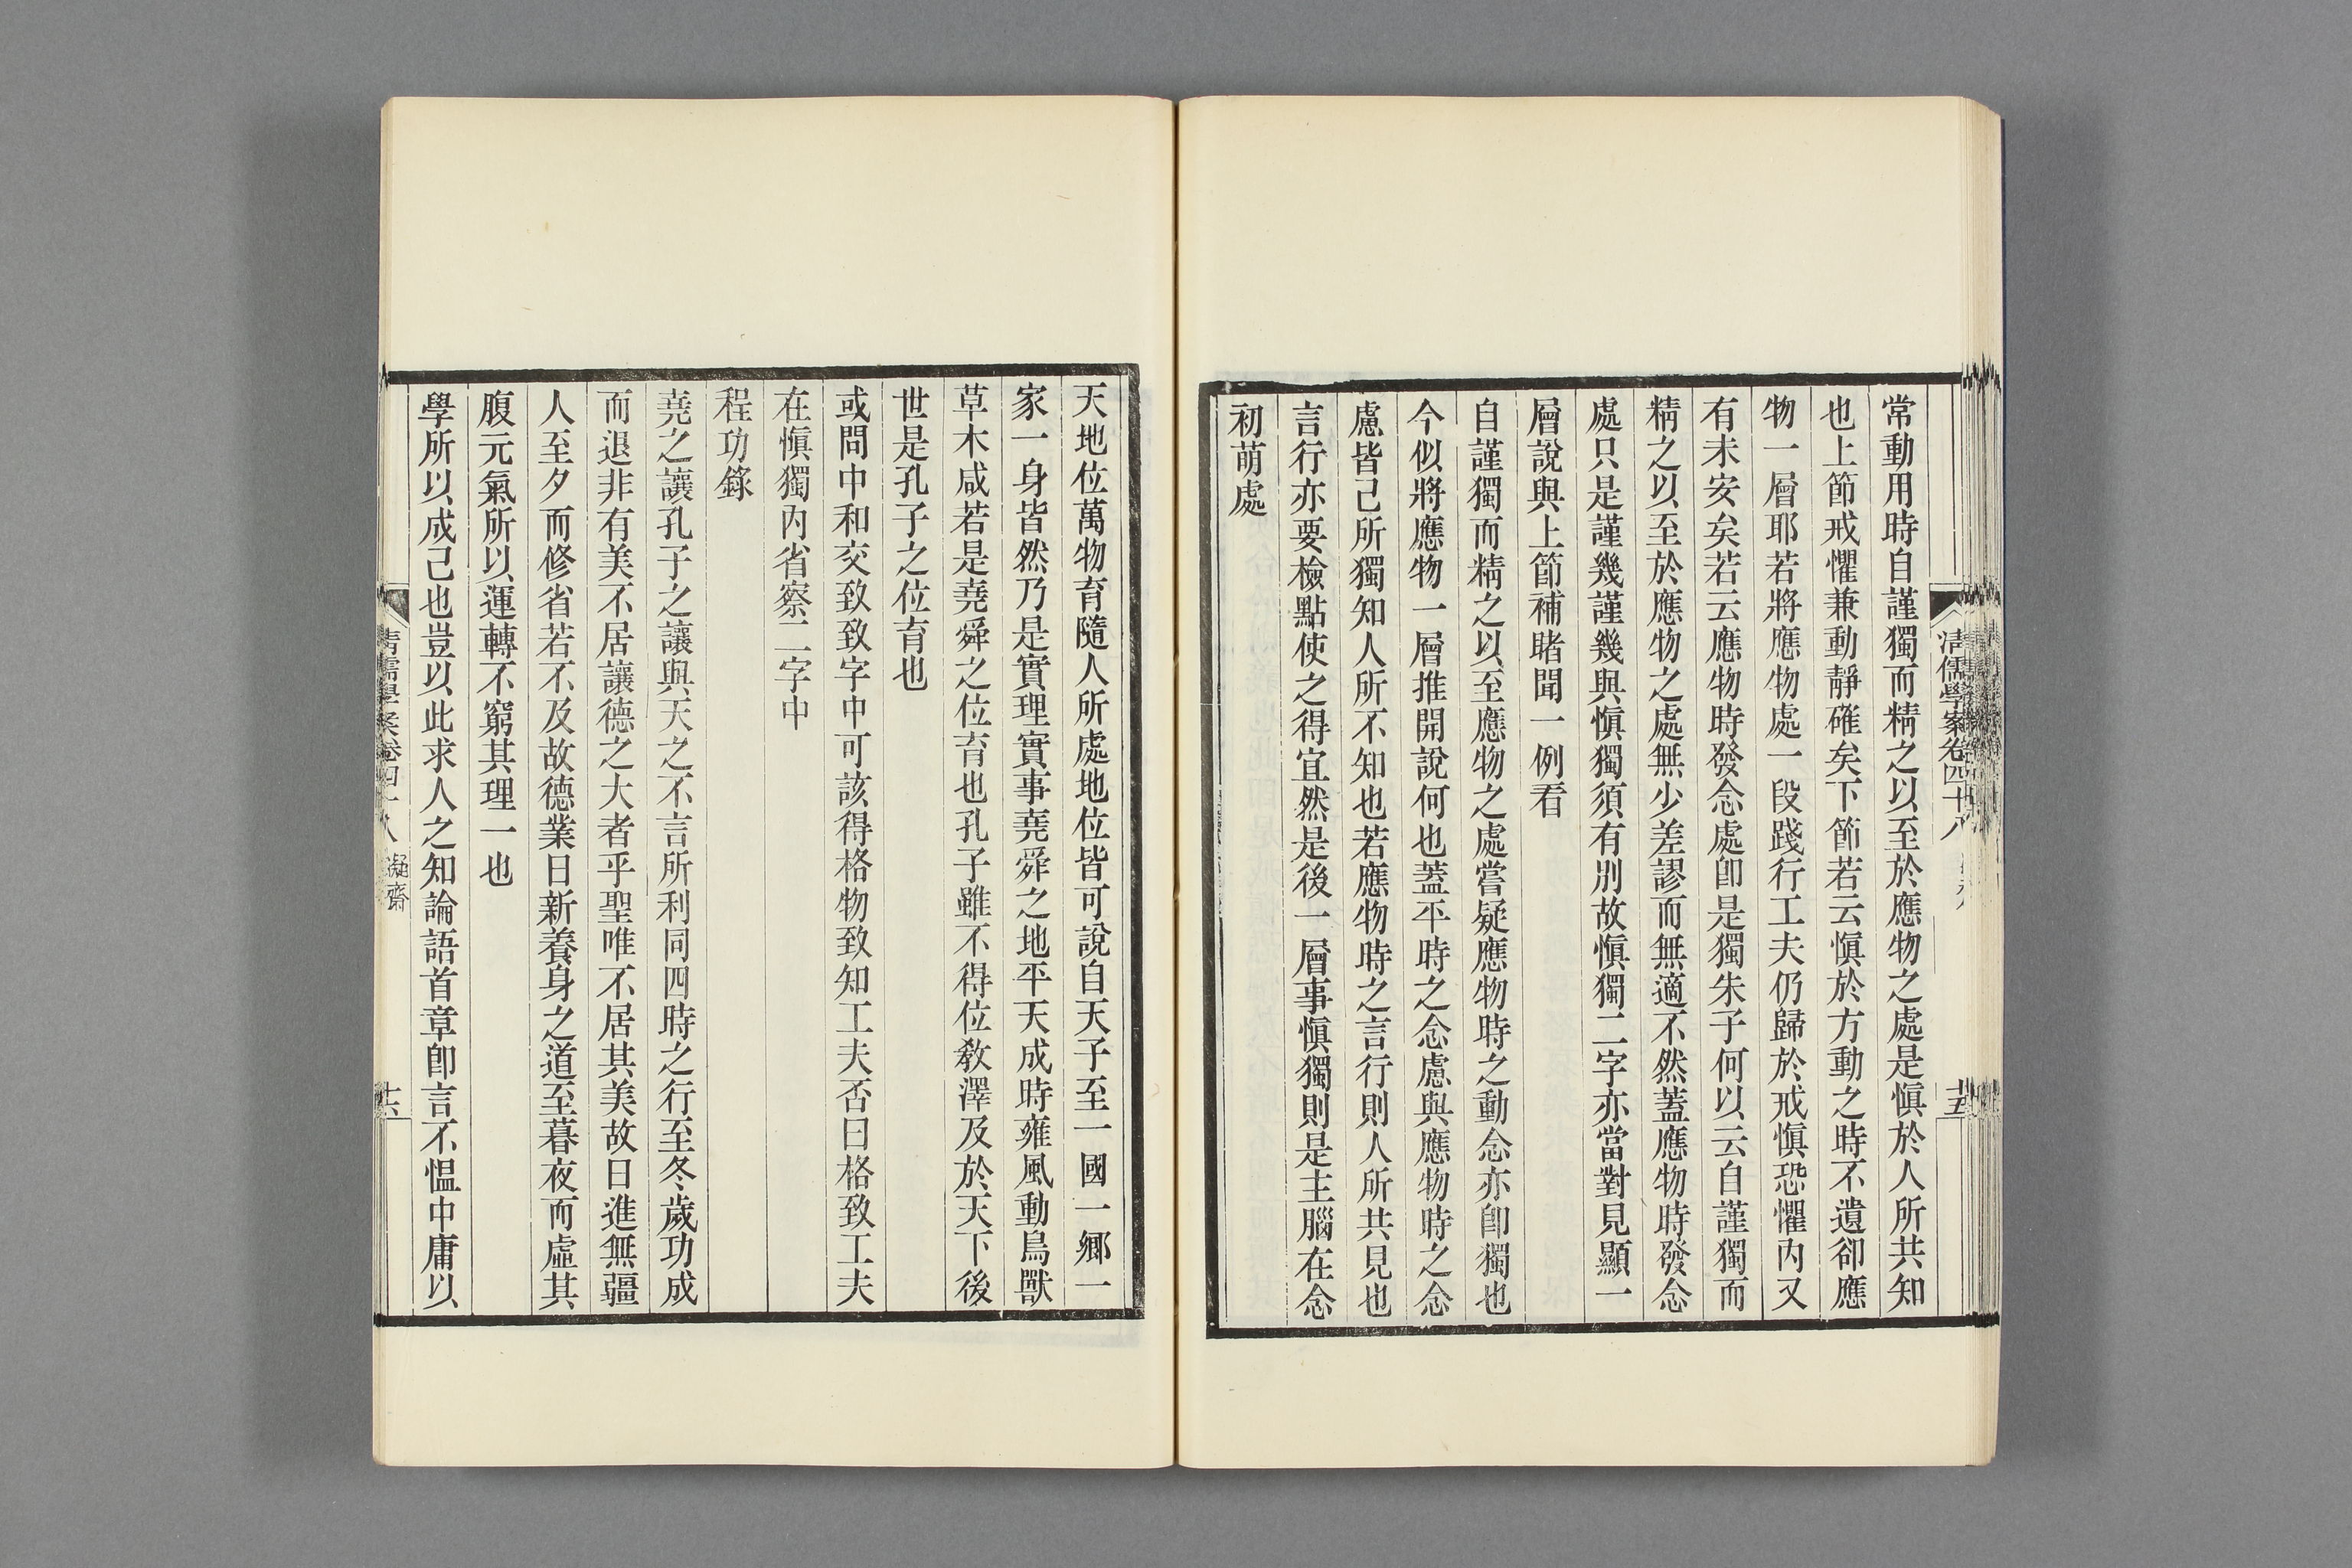 清儒學案卷四十八
十五
常動用時自謹獨而精之以至於應物之處是愼於人所共知
也上節戒懼兼動靜確矣下節若云愼於方動之時不遺卻應
物一層耶若將應物處一段踐行工夫仍歸於戒愼恐懼內又
有未安矣若云應物時發念處卽是獨朱子何以云自謹獨而
精之以至於應物之處無少差謬而無適不然蓋應物時發念
處只是謹幾謹幾與愼獨須有別故愼獨二字亦當對見顯一
層說與上節補睹聞一例看
自謹獨而精之以至應物之處嘗疑應物時之動念亦卽獨也
今似將應物一層推開說何也蓋平時之念慮與應物時之念
慮皆己所獨知人所不知也若應物時之言行則人所共見也
言行亦要檢點使之得宜然是後一層事愼獨則是主腦在念
初萌處
天地位萬物育隨人所處地位皆可說自天子至一國一鄉一
家一身皆然乃是實理實事堯舜之地平天成時雍風動鳥獸
草木咸若是堯舜之位育也孔子雖不得位敎澤及於天下後
世是孔子之位育也
或問中和交致致字中可該得格物致知工夫否曰格致工夫
在愼獨內省察二字中
程功錄
堯之讓孔子之讓與天之不言所利同四時之行至冬歲功成
而退非有美不居讓德之大者乎聖唯不居其美故日進無疆
人至夕而修省若不及故德業日新養身之道至暮夜而虛其
腹元氣所以運轉不窮其理一也
學所以成己也豈以此求人之知論語首章卽言不慍中庸以
清儒學案卷四十八 凝齋
十六